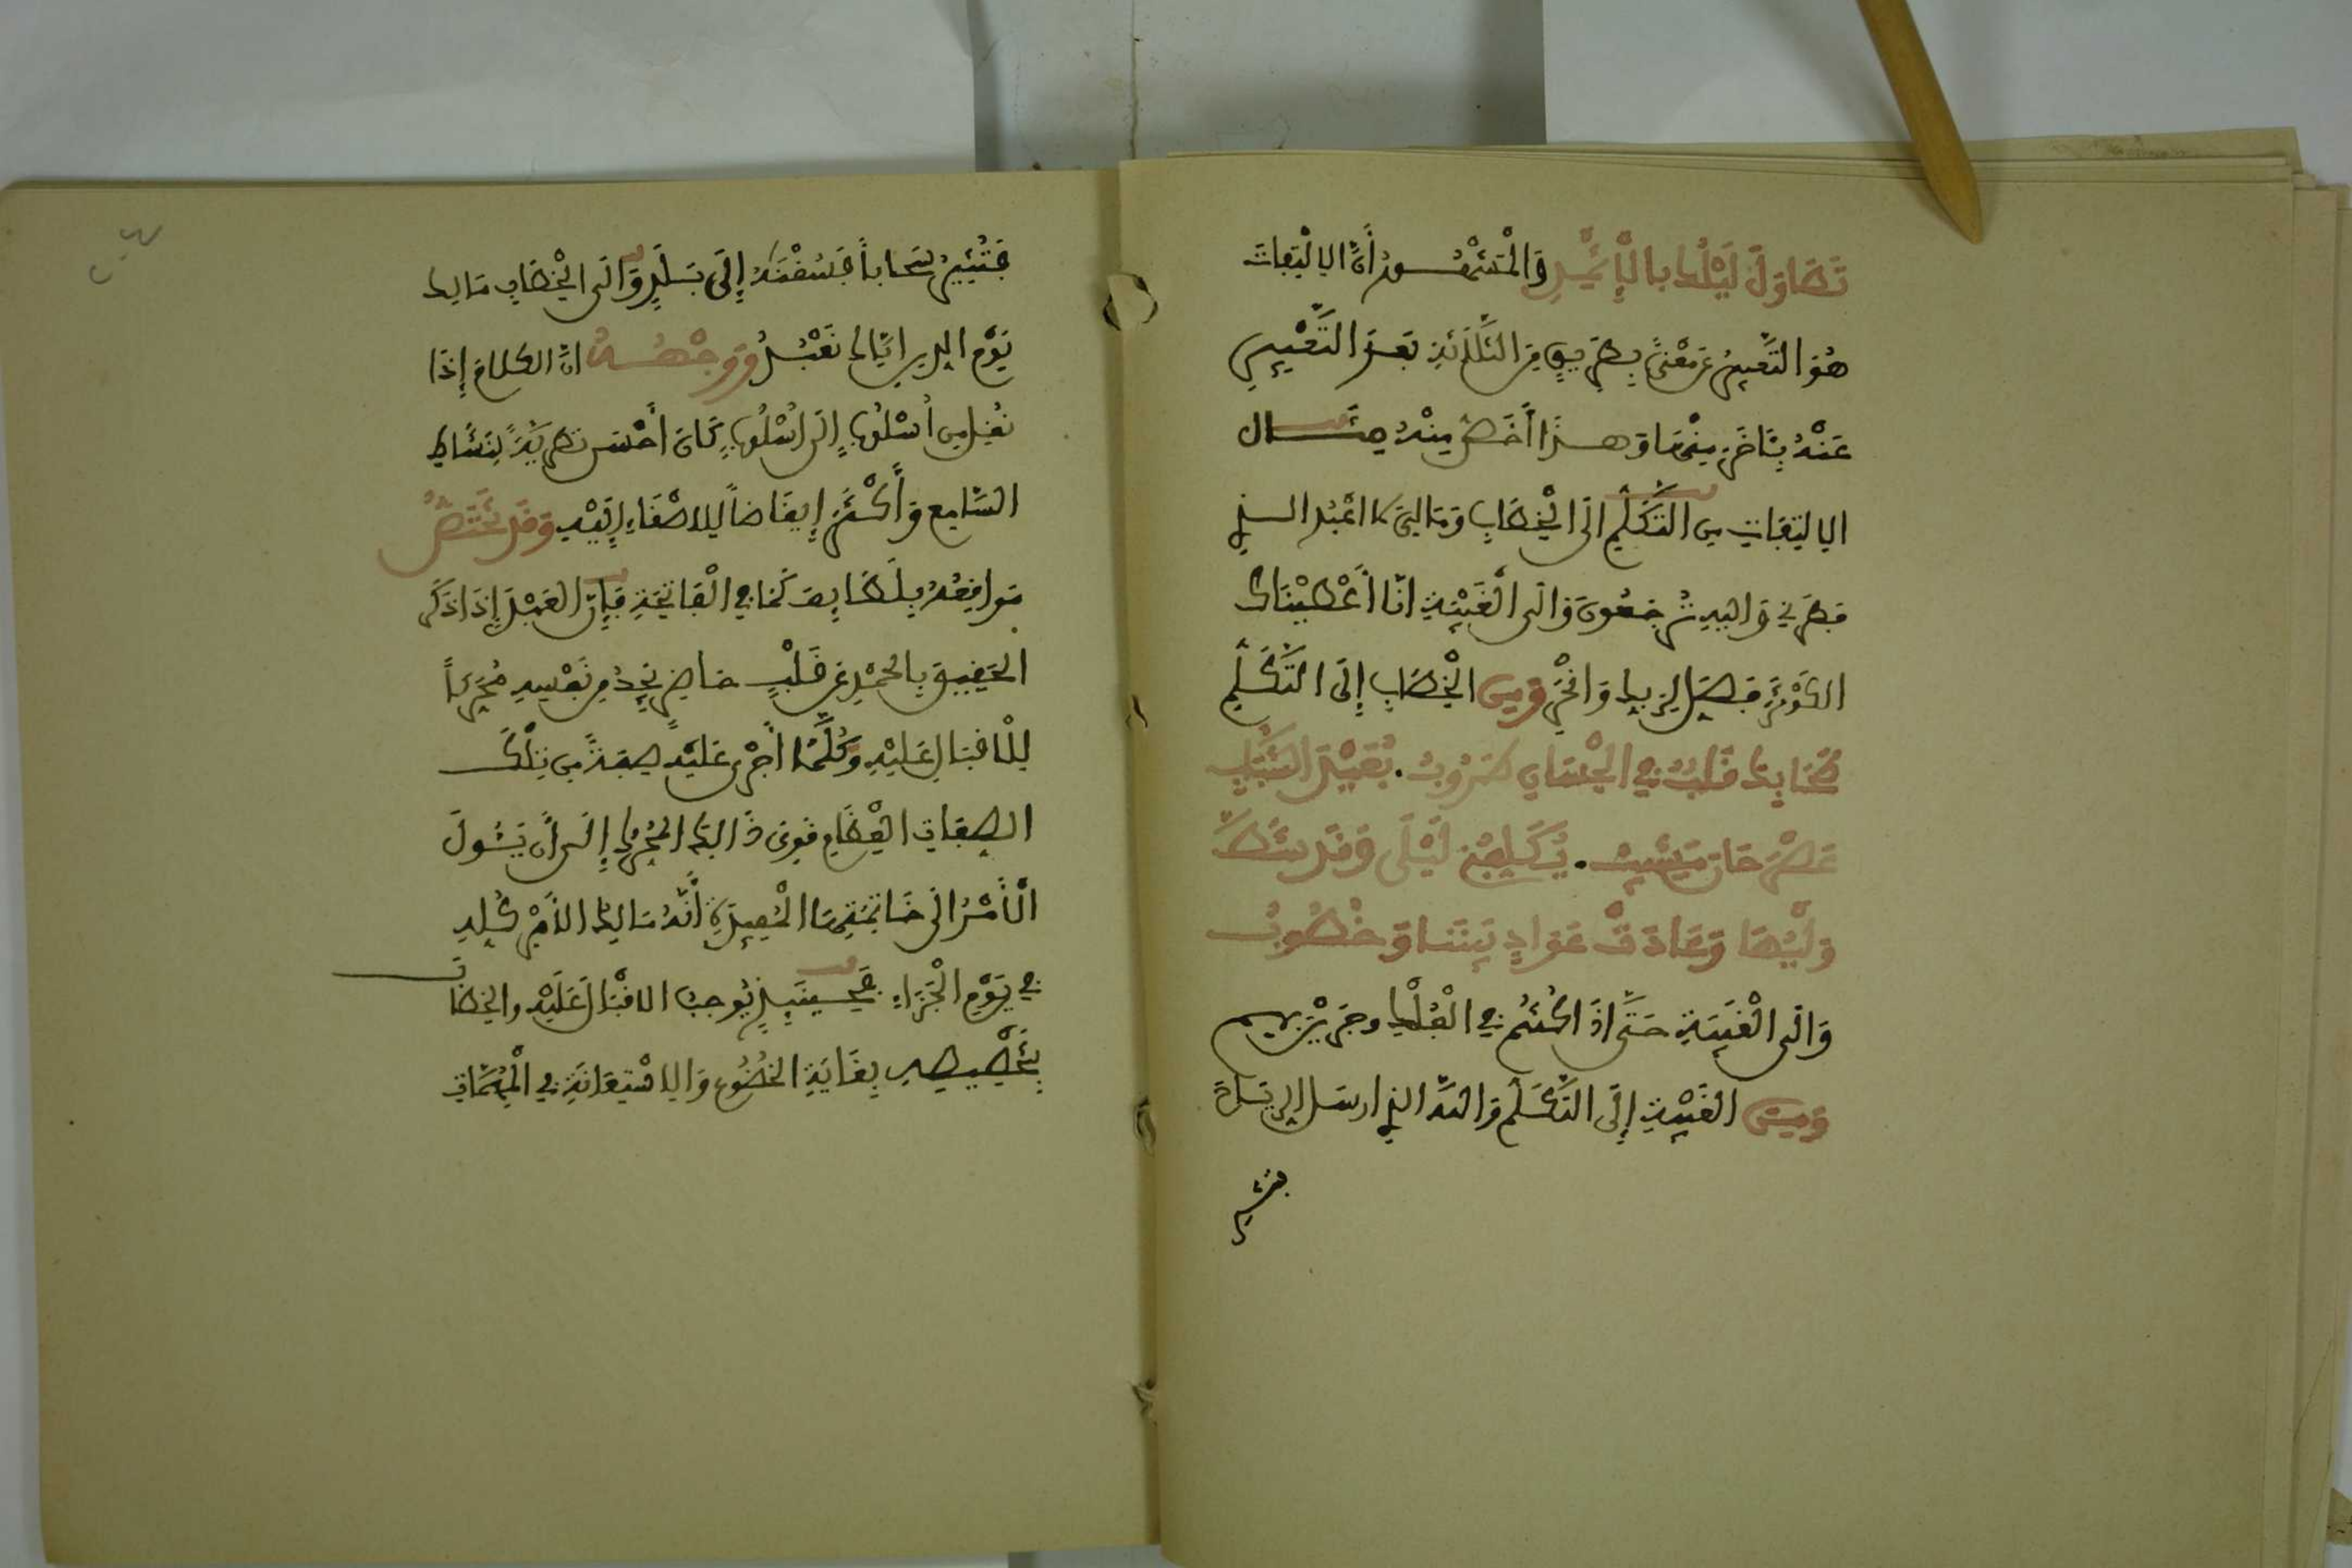 تَطَاوَلَ لَيْلُكَ بِالْإِثْمِدِ وَالْمَشْهُورُ أَنَّ الِالْتِفَاتَ
هُوَ التَّعْبِيرُ عَنْ مَعْنًى بِطَرِيقٍ مِنَ الثَّلَاثَةِ بَعْدَ التَّعْبِيرِ
عَنْهُ بِآخَرَ مِنْهَا وَهَذَا أَخَصُّ مِنْهُ مِثَال
الِالْتِفَاتِ مِنَ التَّكَلُّمِ إِلَى الْخِطَابِ وَمَالِيَ لَا أَعْبُدُ الذِي
فَطَرَنِي وَإِلَيْهِ تُرْجَعُونَ وَإِلَى الْغَيْبَةِ إِنَّا أَعْطَيْنَاكَ
الْكَوْثَرَ فَصَلِّ لِرَبِّكَ وَانْحَرْ وَمِنَ الْخِطَابِ إِلَى التَّكَلُّمِ
طَحَا بِكَ قَلْبٌ فِي الْحِسَانِ طَرُوبُ . بُعَيْدَ الشَّبَابِ
عَصْرَ حَانَ مَشِيبُ . يُكَلِّفُنِي لَيْلَى وَقَدْ شَطَّ
وَلْيُهَا وَعَادَتْ عَوَادٍ بَيْنَنَا وَخُطُوبُ
وَإِلَى الْغَيْبَةِ حَتَّى إِذَا كُنْتُمْ فِي الْفُلْكِ وَجَرَيْنَ بِهِم
وَمِنَ الْغَيْبَةِ إِلَى التَّكَلُّمِ وَاللَّهُ الذِي أَرْسَلَ الرِّيَاحَ
فتثير
فَتُثِيرُ سَحَاباً فَسُقْنَاهُ إِلَى بَلَدٍ وَإِلَى الْخِطَابِ مَالِكِ
يَوْمِ الدِّينِ إِيَّاكَ نَعْبُدُ وَوَجْهُهُ أَنَّ الْكَلَامَ إِذَا
نُقِلَ مِنْ أُسْلُوبٍ إِلَى أُسْلُوبٍ كَانَ أَحْسَنَ تَطْرِيَةً لِنَشَاطِ
السَّامِعِ وَأَكْثَرَ إِيقَاظاً لِلْإِصْغَاءِ إِلَيْهِ وَقَدْ تَخْتَصُّ
مَوَاقِعُهُ بِلَطَائِفَ كَمَا فِي الْفَاتِحَةِ فَإِنَّ الْعَبْدَ إِذَا ذَكَرَ
الْحَقِيقَ بِالْحَمْدِ عَنْ قَلْبٍ حَاضِرٍ يَجِدُ مِنْ نَفْسِهِ مُحَرِّكاً
لِلْإِقْبَالِ عَلَيْهِ وَكُلَّمَا أَجْرَى عَلَيْهِ صِفَةً مِنْ تِلْكَ
الصِّفَاتِ الْعِظَامِ قَوِيَ ذَالِكَ الْمُحَرِّكُ إِلَى أَنْ يَئُولَ
الْأَمْرُ إِلَى خَاتِمَتِهَا الْمُفِيدَةِ أَنَّهُ مَالِكُ الْأَمْرِ كُلِّهِ
فِي يَوْمِ الْجَزَاءِ فَحِينَئِذٍ يُوجِبُ الْإِقْبَالَ عَلَيْهِ وَالْخِطَابَ
بِتَخْصِيصِهِ بِغَايَةِ الْخُضُوعِ وَالِاسْتِعَانَةِ فِي الْمُهِمَّاتِ